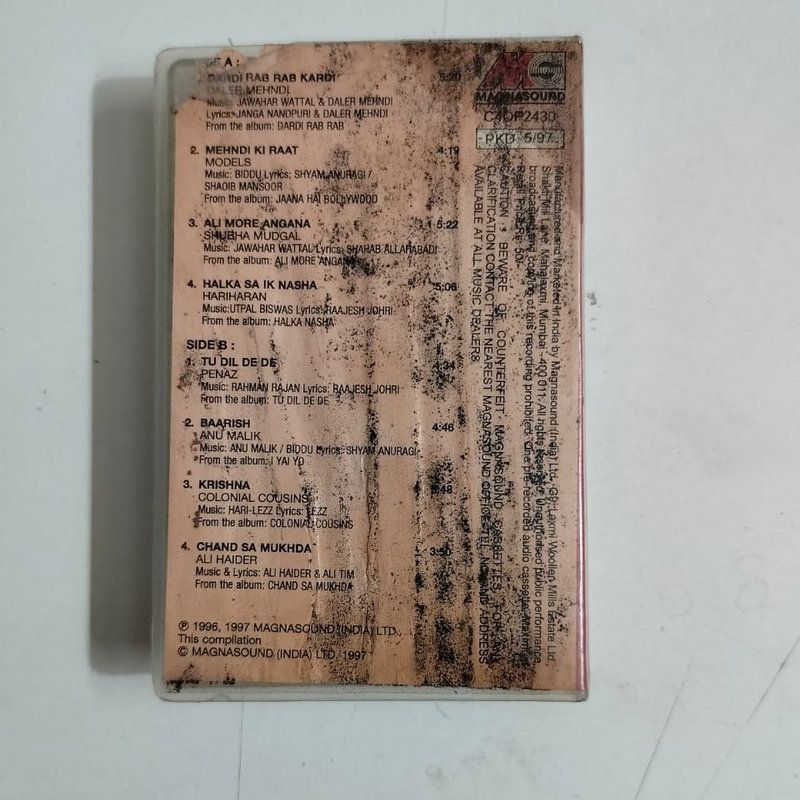 DE A :
DARDI RAB RAB KARDI 5:20
DALER MEHNDI
Music: JAWAHAR WATTAL & DALER MEHNDI
Lyrics: JANGA NANDPURI & DALER MEHNDI
From the album: DARDI RAB RAB
2. MEHNDI KI RAAT 4:19
MODELS
Music: BIDDU Lyrics: SHYAM ANURAGI /
SHAOIB MANSOOR
From the album: JAANA HAI BOLLYWOOD
3. ALI MORE ANGANA 5:22
SHUBHA MUDGAL
Music: JAWAHAR WATTAL Lyrics: SHAHAB ALLAHABADI
From the album: ALI MORE ANGANA
4. HALKA SA IK NASHA 5:06
HARIHARAN
Music:UTPAL BISWAS Lyrics: RAAJESH JOHRI
From the album: HALKA NASHA
SIDE B :
1. TU DIL DE DE :34
PENAZ
Music: RAHMAN RAJAN Lyrics: RAAJESH JOHRI
From the album: TU DIL DE DE
2. BAARISH 4:46
ANU MALIK
Music: ANU MALIK / BIDDU Lyrics: SHYAM ANURAGI
From the album: I YAI YO
3. KRISHNA :48
COLONIAL COUSINS
Music: HARI-LEZZ Lyrics: LEZZ
From the album: COLONIAL COUSINS
4. CHAND SA MUKHDA 3:50
ALI HAIDER
Music & Lyrics: ALI HAIDER & ALI TIM
From the album: CHAND SA MUKHDA
℗ 1996, 1997 MAGNASOUND (INDIA) LTD.
This compilation
© MAGNASOUND (INDIA) LTD. 1997
MAGNASOUND
C4OP2430
PKD 5/97
Manufactured and Marketed in India by Magnasound (India) Ltd., G9, Laxmi Woollen Mills Estate Ltd.,
Shakti Mill Lane, Mahalaxmi, Mumbai - 400 011. All rights Unauthorised public performance
broadcasting and copying of this recording prohibited. One pre-recorded audio cassette.
CAUTION : BEWARE OF COUNTERFEIT MAGNASOUND CASSETTES. FOR ANY
CLARIFICATION CONTACT THE NEAREST MAGNASOUND OFFICE. ADDRESS
AVAILABLE AT ALL MUSIC DEALERS